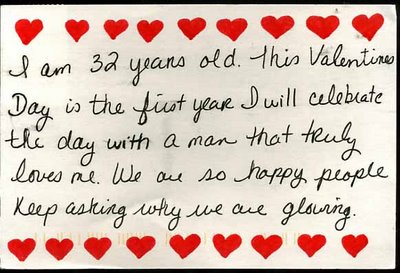 I am 32 years old. This Valentines
Day is the first year I will celebrate
the day with a man that truly
loves me. We are so happy people
keep asking why we are glowing.